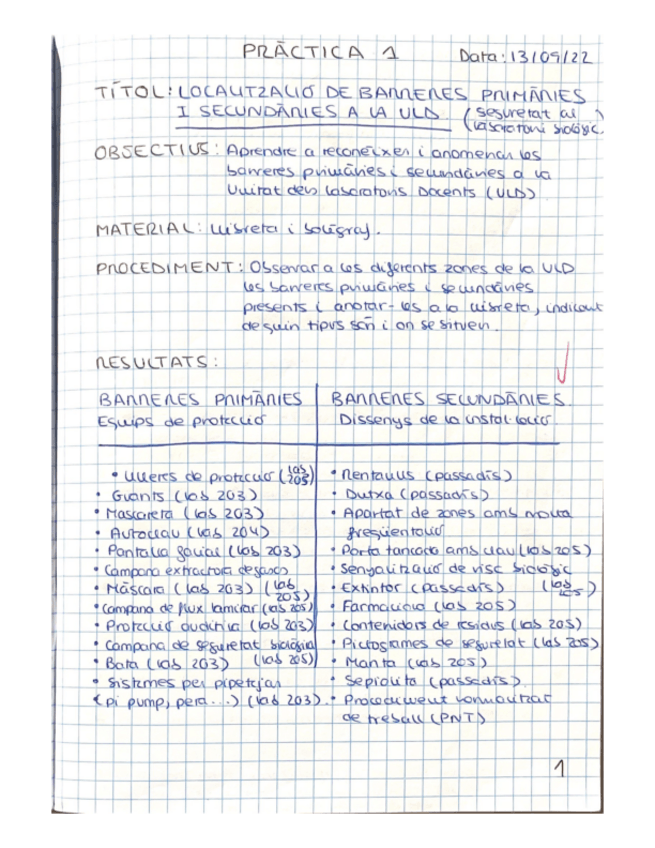 PRÀCTICA 1 Data: 13/09/22
TÍTOL: LOCALITZACIÓ DE BARRERES PRIMÀRIES
I SECUNDÀRIES A LA ULD (seguretat al
laboratori biològic)
OBJECTIUS: Aprendre a reconèixer i anomenar les
barreres primàries i secundàries a la
Unitat dels laboratoris Docents (ULD)
MATERIAL: Llibreta i bolígraf.
PROCEDIMENT: Observar a les diferents zones de la ULD
les barreres primàries i secundàries
presents i anotar-les a la llibreta, indicant
de quin tipus són i on se situen.
RESULTATS:
BARRERES PRIMÀRIES
Equips de protecció
• Ulleres de protecció (lab 205)
• Guants (lab 203)
• Mascareta (lab 203)
• Autoclau (lab 204)
• Pantalla facial (lab 203)
• Campana extractora de gasos
• Màscara (lab 203) (lab 205)
• Campana de flux laminar (lab 205)
• Protecció auditiva (lab 203)
• Campana de seguretat biològica
• Bata (lab 203) (lab 205)
• Sistemes per pipetejar
(pi pump, pera...) (lab 203).
BARRERES SECUNDÀRIES
Dissenys de la instal·lació
• Rentaulls (passadís)
• Dutxa (passadís)
• Apartat de zones amb molta
freqüentació
• Porta tancada amb clau (lab 205)
• Senyalització de risc biològic
• Extintor (passadís) (lab 205)
• Farmaciola (lab 205)
• Contenidors de residus (lab 205)
• Pictogrames de seguretat (lab 205)
• Manta (lab 205)
• Sepiolita (passadís)
• Procediment normalitzat
de treball (PNT)
1